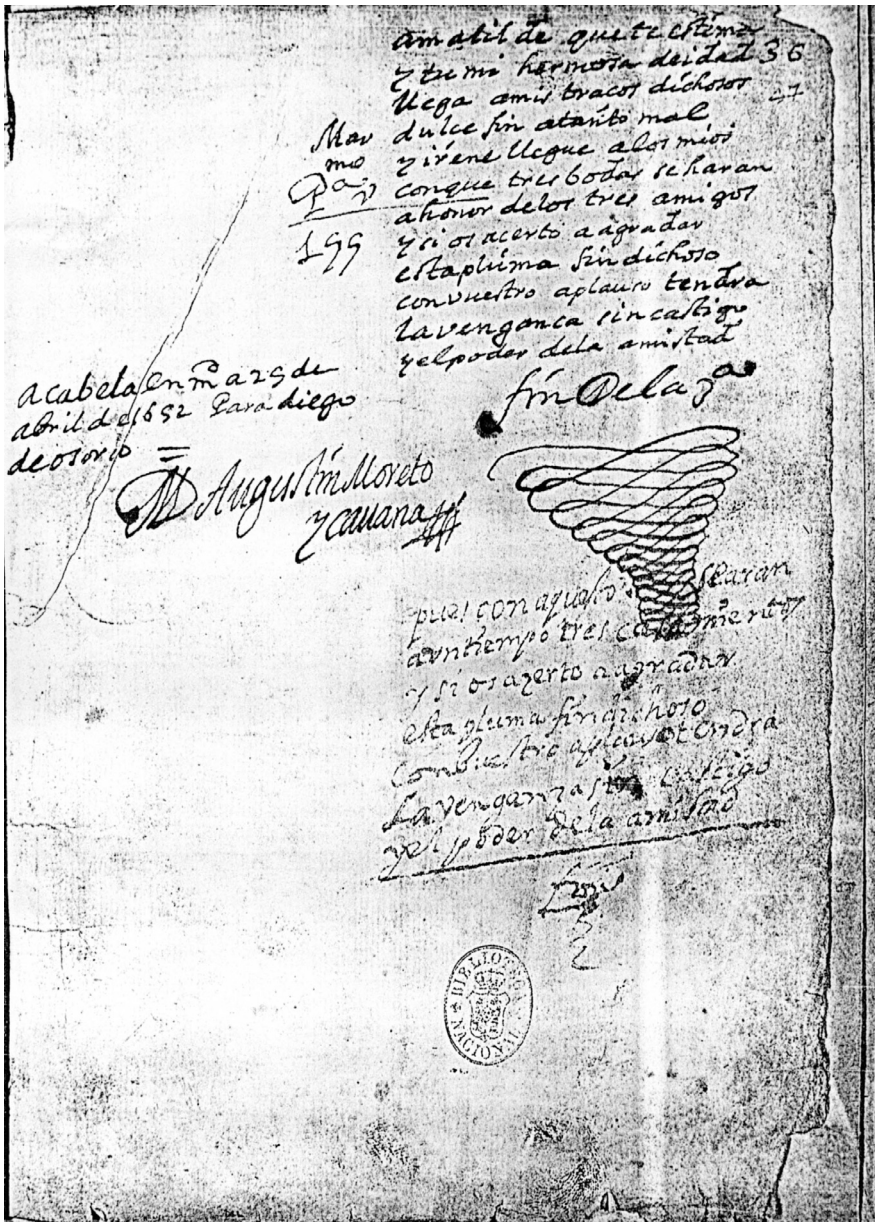 amatilde que te estima
y tu mi hermosa deidad 36
llega amis braços dichosos 27
dulce fin atanto mal
Mar
mo
y irene llegue alos mios
conque tres bodas se haran
ahonor delos tres amigos
199
y si os acerto a agradar
esta pluma fin dichoso
con vuestro aplauso tendra
la vengança sin castigo
y el poder dela amistad
fin De la 3ª
acabela en md a 25 de
abril de 1652 Para diego
de osorio =
Augustin Moreto
y cauana
pues con aqueso se haran
a vn tiempo tres casamientos
y si os azerto a agradar
esta pluma fin dichoso
con buestro aplauso tendra
La venganza sin castigo
y el poder de la amistad
fin
BIBLIOTECA NACIONAL